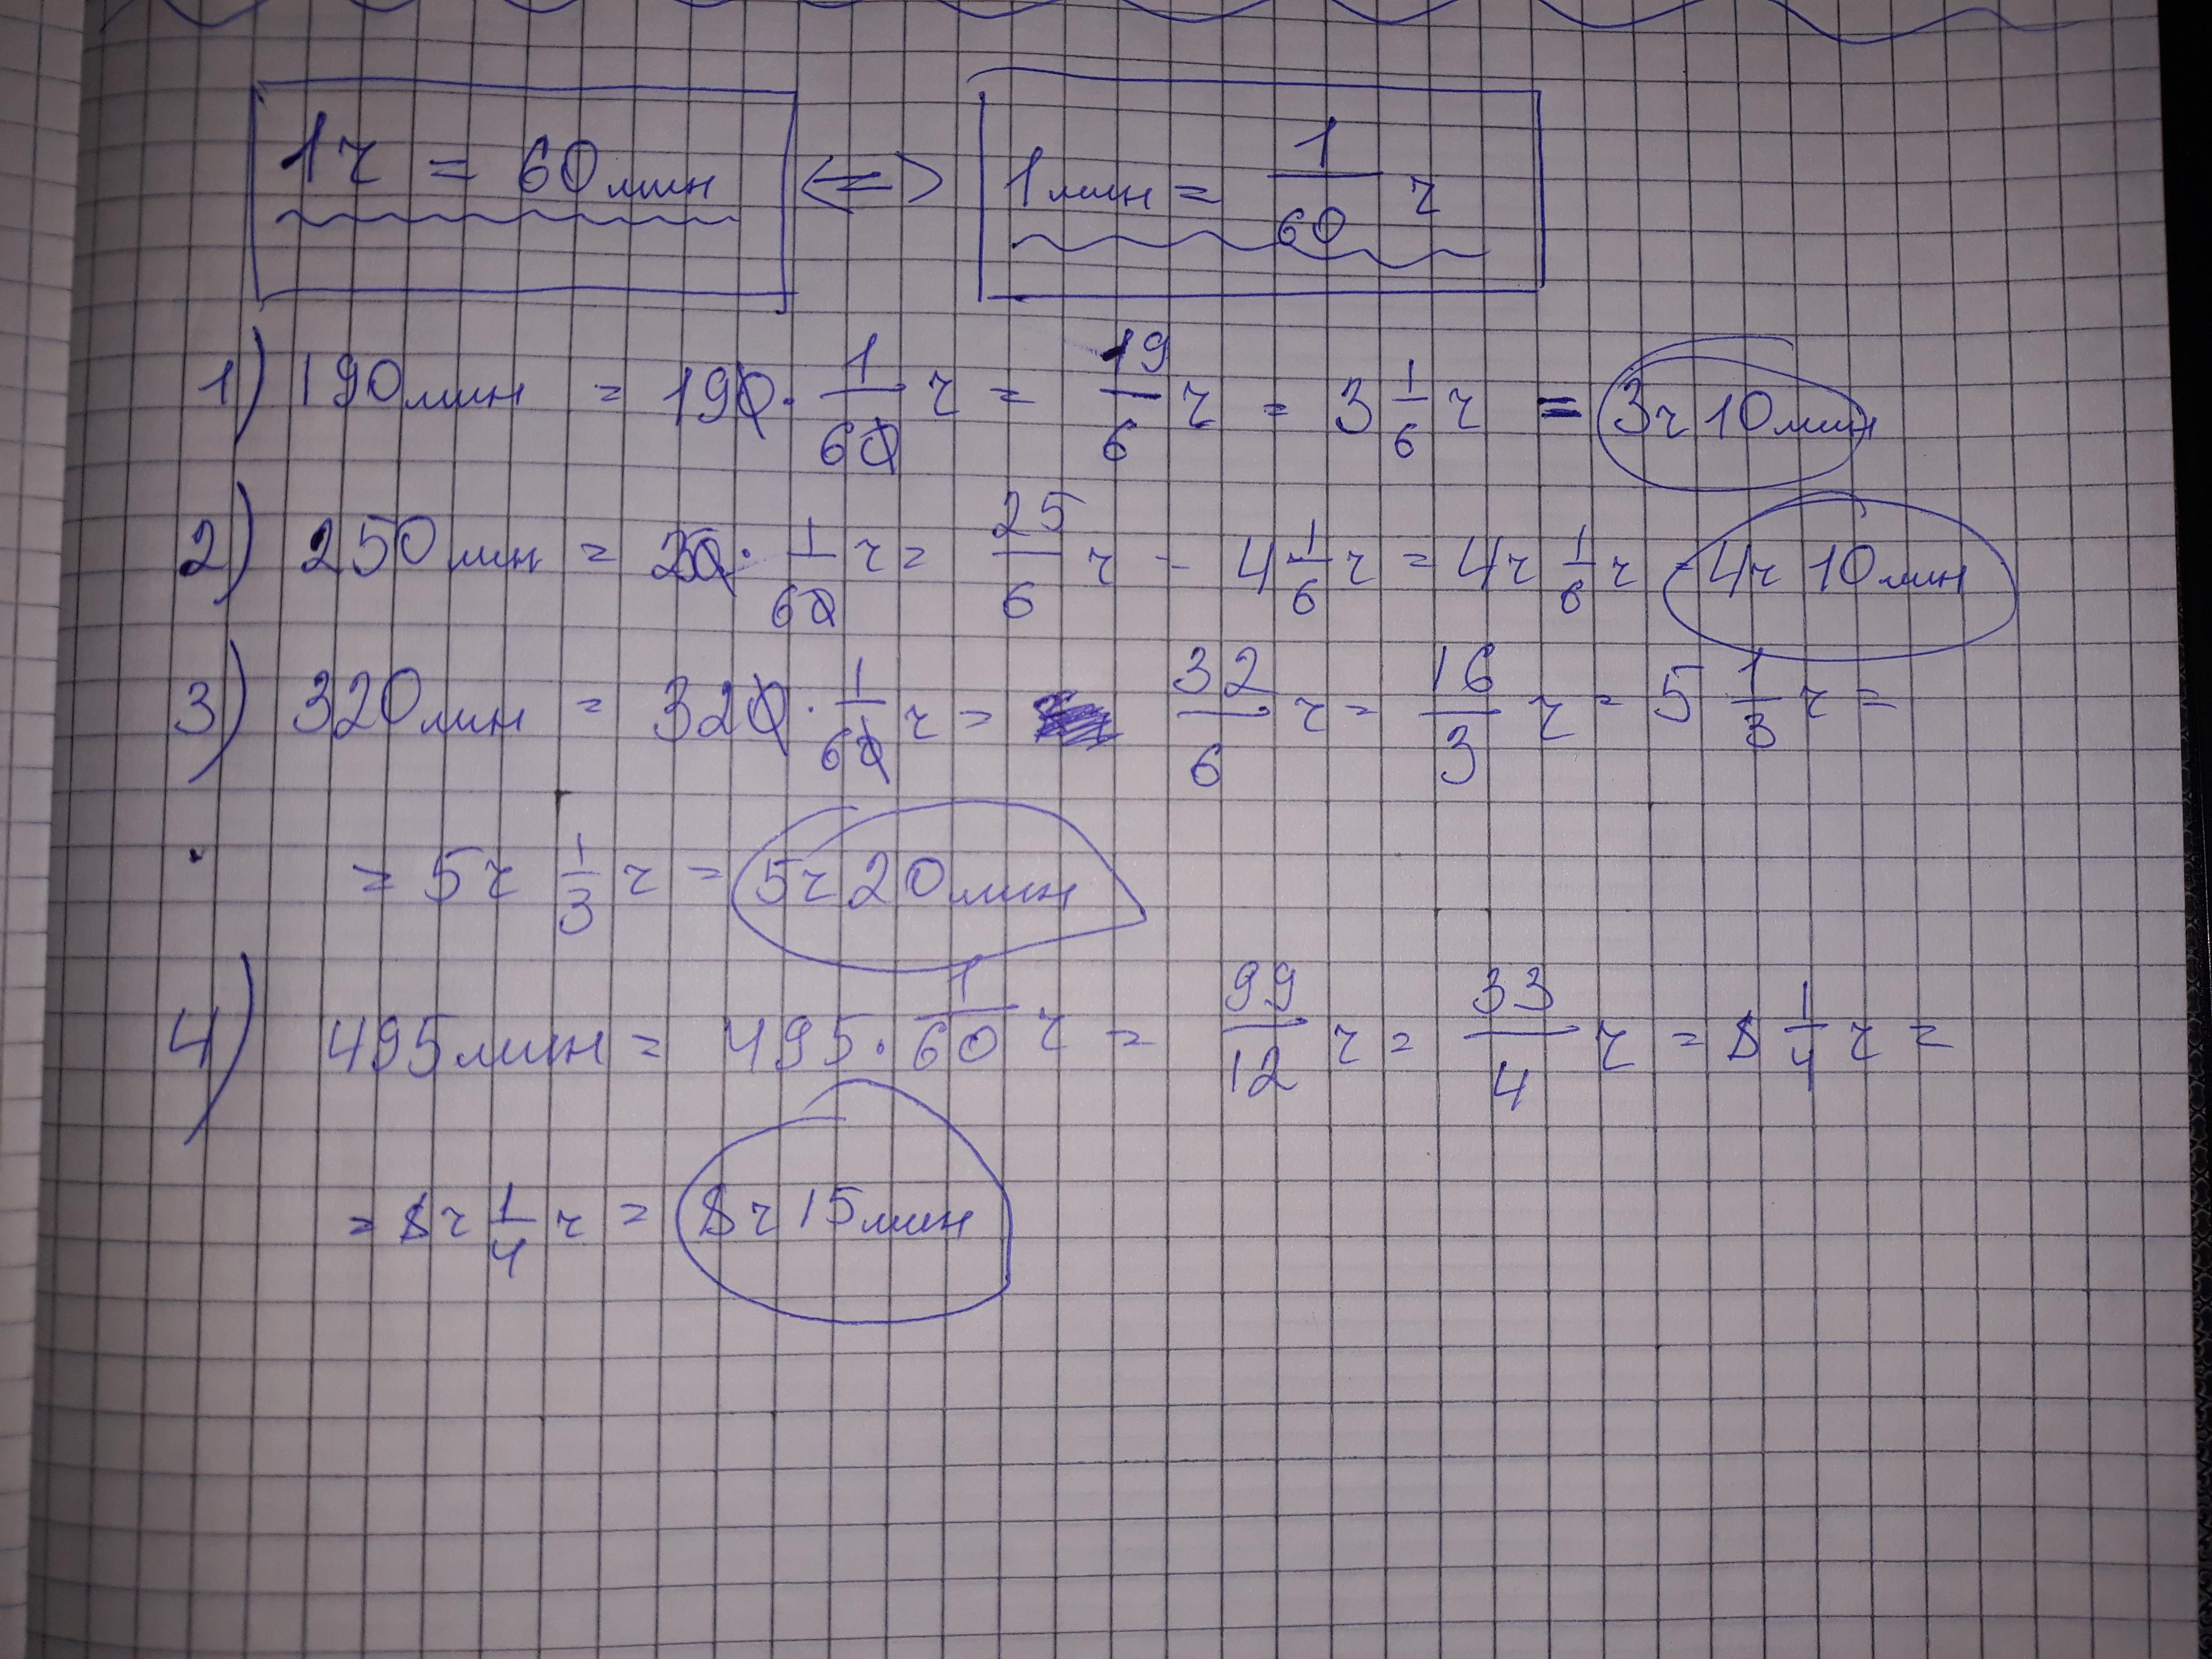 1ч = 60мин <=> 1мин = 1/60 ч
1) 190мин = 190 · 1/60 ч = 19/6 ч = 3 1/6 ч = 3ч 10мин
2) 250мин = 250 · 1/60 ч = 25/6 ч = 4 1/6 ч = 4ч 1/6 ч = 4ч 10мин
3) 320мин = 320 · 1/60 ч = 32/6 ч = 16/3 ч = 5 1/3 ч =
= 5ч 1/3 ч = 5ч 20мин
4) 495мин = 495 · 1/60 ч = 99/12 ч = 33/4 ч = 8 1/4 ч =
= 8ч 1/4 ч = 8ч 15мин